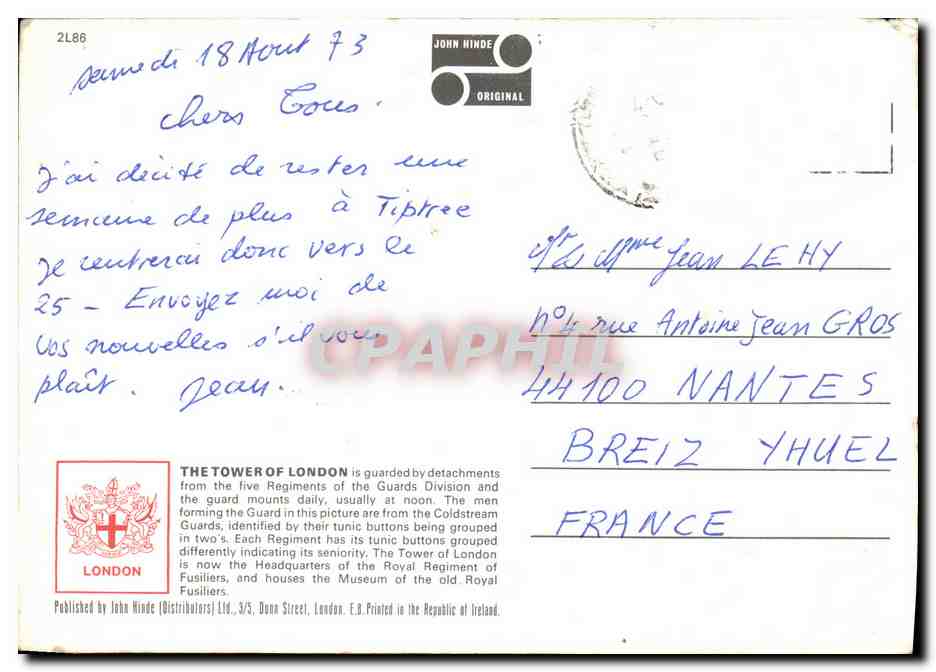 2L86
samedi 18 Aout 73
chers Tous.
J'ai décité de rester une
semaine de plus à Tiptree
Je rentrerai donc vers le
25 - Envoyez moi de
vos nouvelles s'il vous
plaît. Jean.
JOHN HINDE
ORIGINAL
Mr & Mme Jean LE HY
n°4 rue Antoine Jean GROS
44100 NANTES
BREIZ YHUEL
FRANCE
CPAPHIL
LONDON
THE TOWER OF LONDON is guarded by detachments
from the five Regiments of the Guards Division and
the guard mounts daily, usually at noon. The men
forming the Guard in this picture are from the Coldstream
Guards, identified by their tunic buttons being grouped
in two's. Each Regiment has its tunic buttons grouped
differently indicating its seniority. The Tower of London
is now the Headquarters of the Royal Regiment of
Fusiliers, and houses the Museum of the old Royal
Fusiliers.
Published by John Hinde (Distributors) Ltd., 3/5, Dunn Street, London. E.8. Printed in the Republic of Ireland.